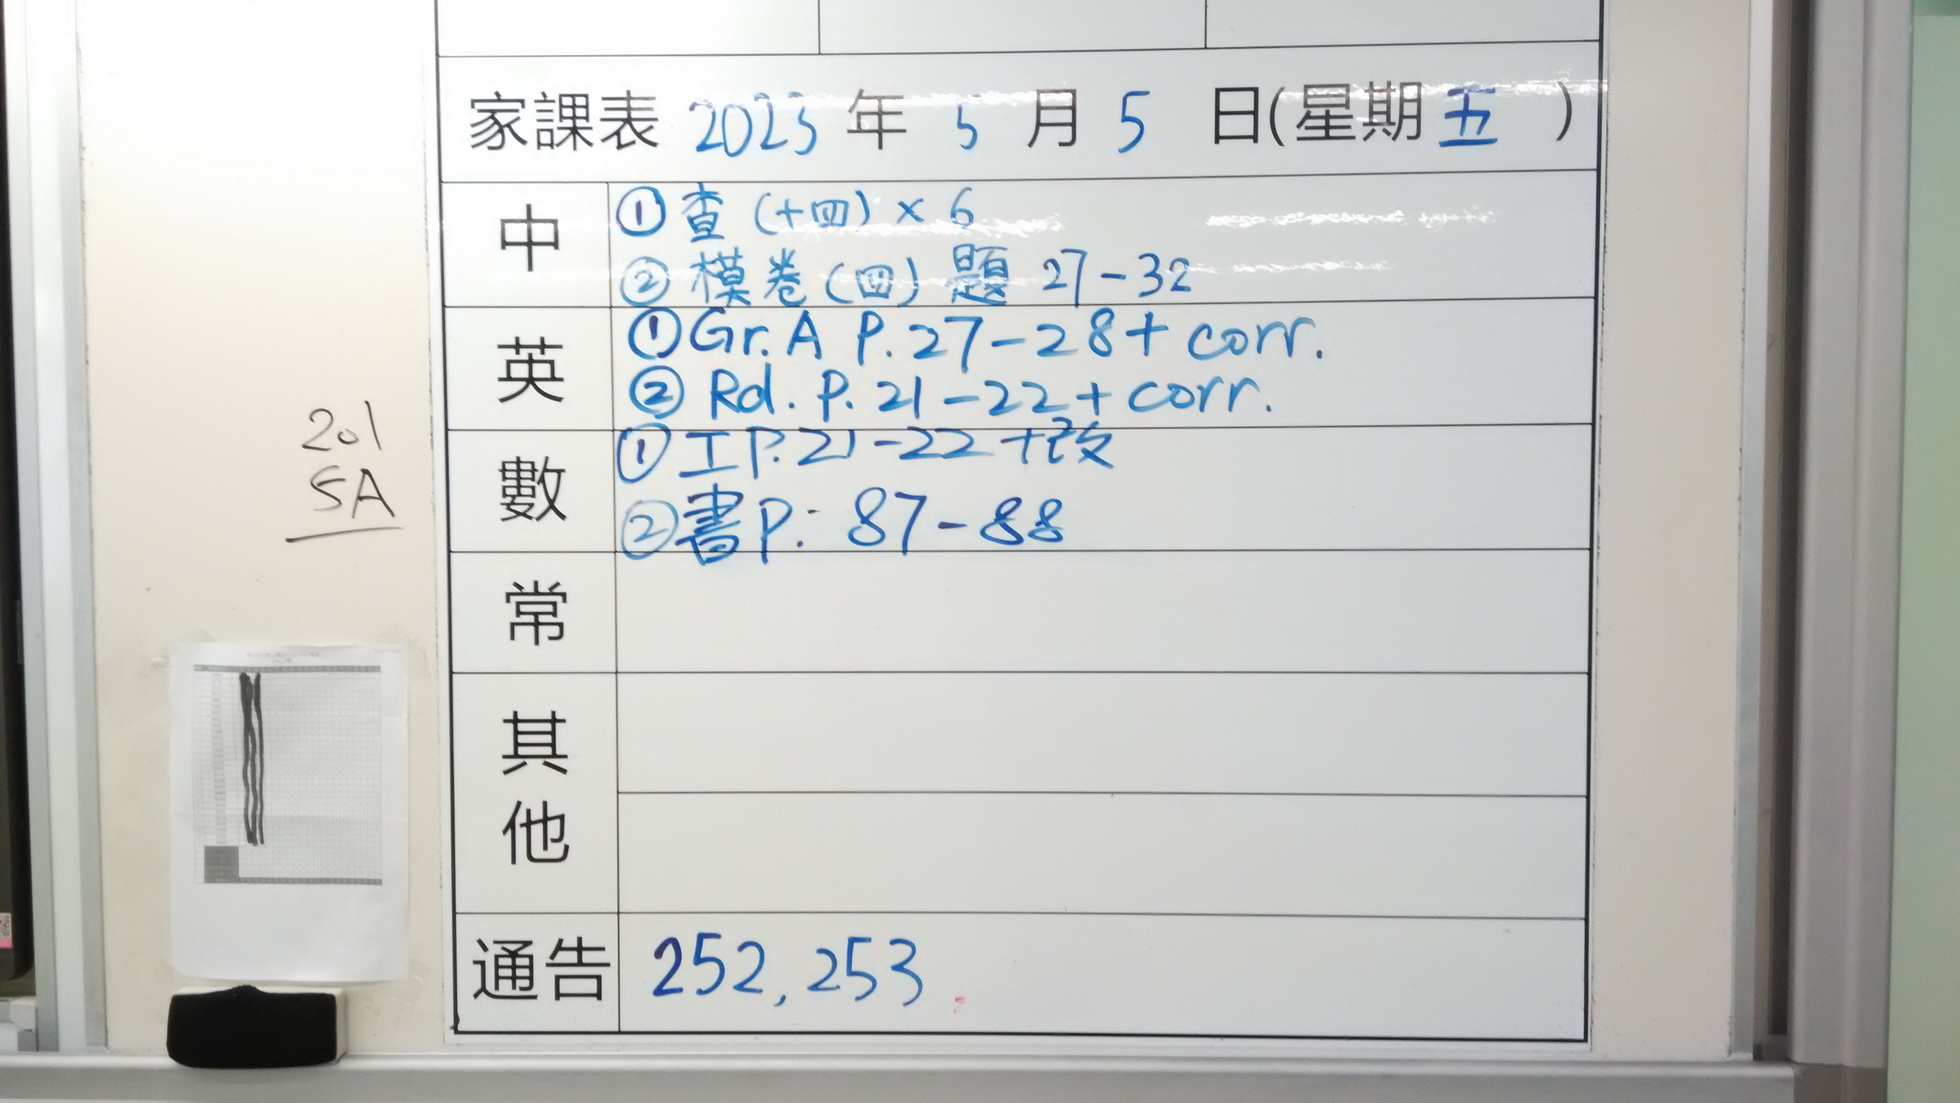 家課表 2023 年 5 月 5 日(星期 五 )
中
① 查 (十四) × 6
② 模卷 (四) 題 27-32
英
① Gr. A P. 27-28 + corr.
② Rd. P. 21-22 + corr.
數
① 工 P. 21-22 + 改
② 書 P: 87-88
常
其他
通告 252, 253
201
5A